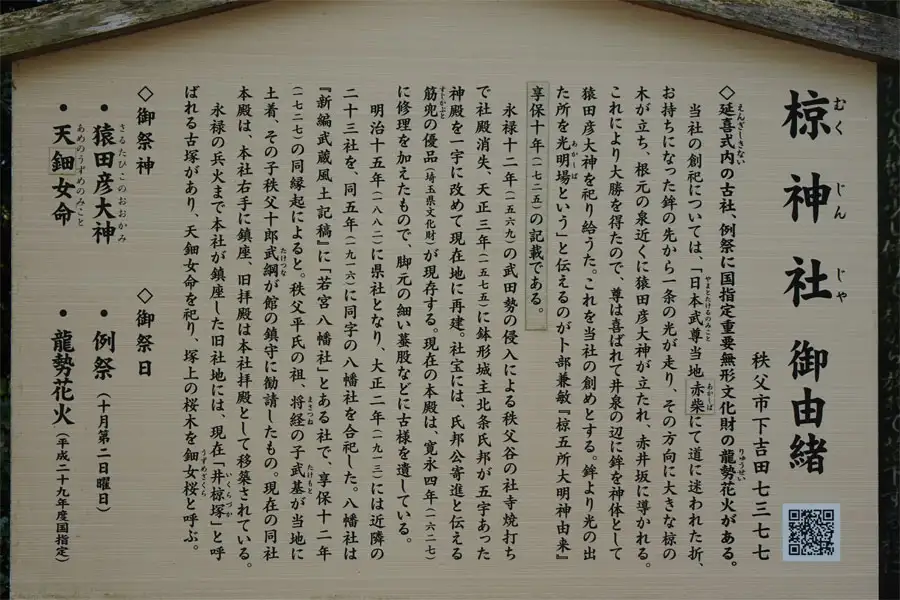 椋神社 御由緒
秩父市下吉田七三七七
◇延喜式内の古社、例祭に国指定重要無形文化財の龍勢花火がある。
当社の創祀については、「日本武尊当地赤柴にて道に迷われた折、
お持ちになった鉾の先から一条の光が走り、その方向に大きな椋の
木が立ち、根元の泉近くに猿田彦大神が立たれ、赤井坂に導かれる。
これにより大勝を得たので、尊は喜ばれて井泉の辺に鉾を神体として
猿田彦大神を祀り給うた。これを当社の創めとする。鉾より光の出
た所を光明場という」と伝えるのが卜部兼敏『椋五所大明神由来』
享保十年(一七二五)の記載である。
永禄十二年(一五六九)の武田勢の侵入による秩父谷の社寺焼打ち
で社殿消失、天正三年(一五七五)に鉢形城主北条氏邦が五宇あった
神殿を一宇に改めて現在地に再建。社宝には、氏邦公寄進と伝える
筋兜の優品(埼玉県文化財)が現存する。現在の本殿は、寛永四年(一六二七)
に修理を加えたもので、脚元の細い蟇股などに古様を遺している。
明治十五年(一八八二)に県社となり、大正二年(一九一三)には近隣の
二十三社を、同五年(一九一六)に同字の八幡社を合祀した。八幡社は
『新編武蔵風土記稿』に「若宮八幡社」とある社で、享保十二年
(一七二七)の同縁起によると。秩父平氏の祖、将経の子武基が当地に
土着、その子秩父十郎武綱が館の鎮守に勧請したもの。現在の同社
本殿は、本社右手に鎮座、旧拝殿は本社拝殿として移築されている。
永禄の兵火まで本社が鎮座した旧社地には、現在「井椋塚」と呼
ばれる古塚があり、天鈿女命を祀り、塚上の桜木を鈿女桜と呼ぶ。
◇御祭神
・猿田彦大神
・天鈿女命
◇御祭日
・例祭(十月第二日曜日)
・龍勢花火(平成二十九年度国指定)